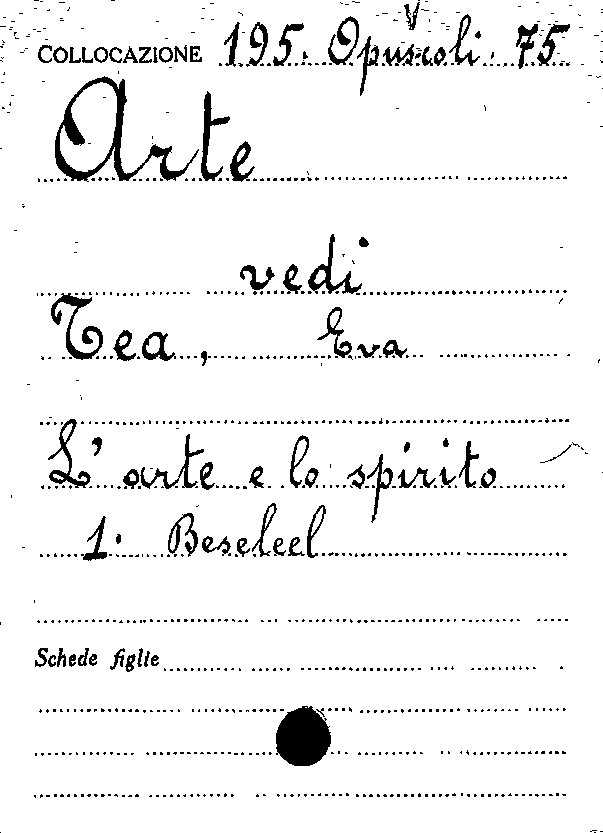 COLLOCAZIONE 195. Opuscoli. 75
Arte
vedi
Tea, Eva
L'arte e lo spirito
1. Beseleel
Schede figlie